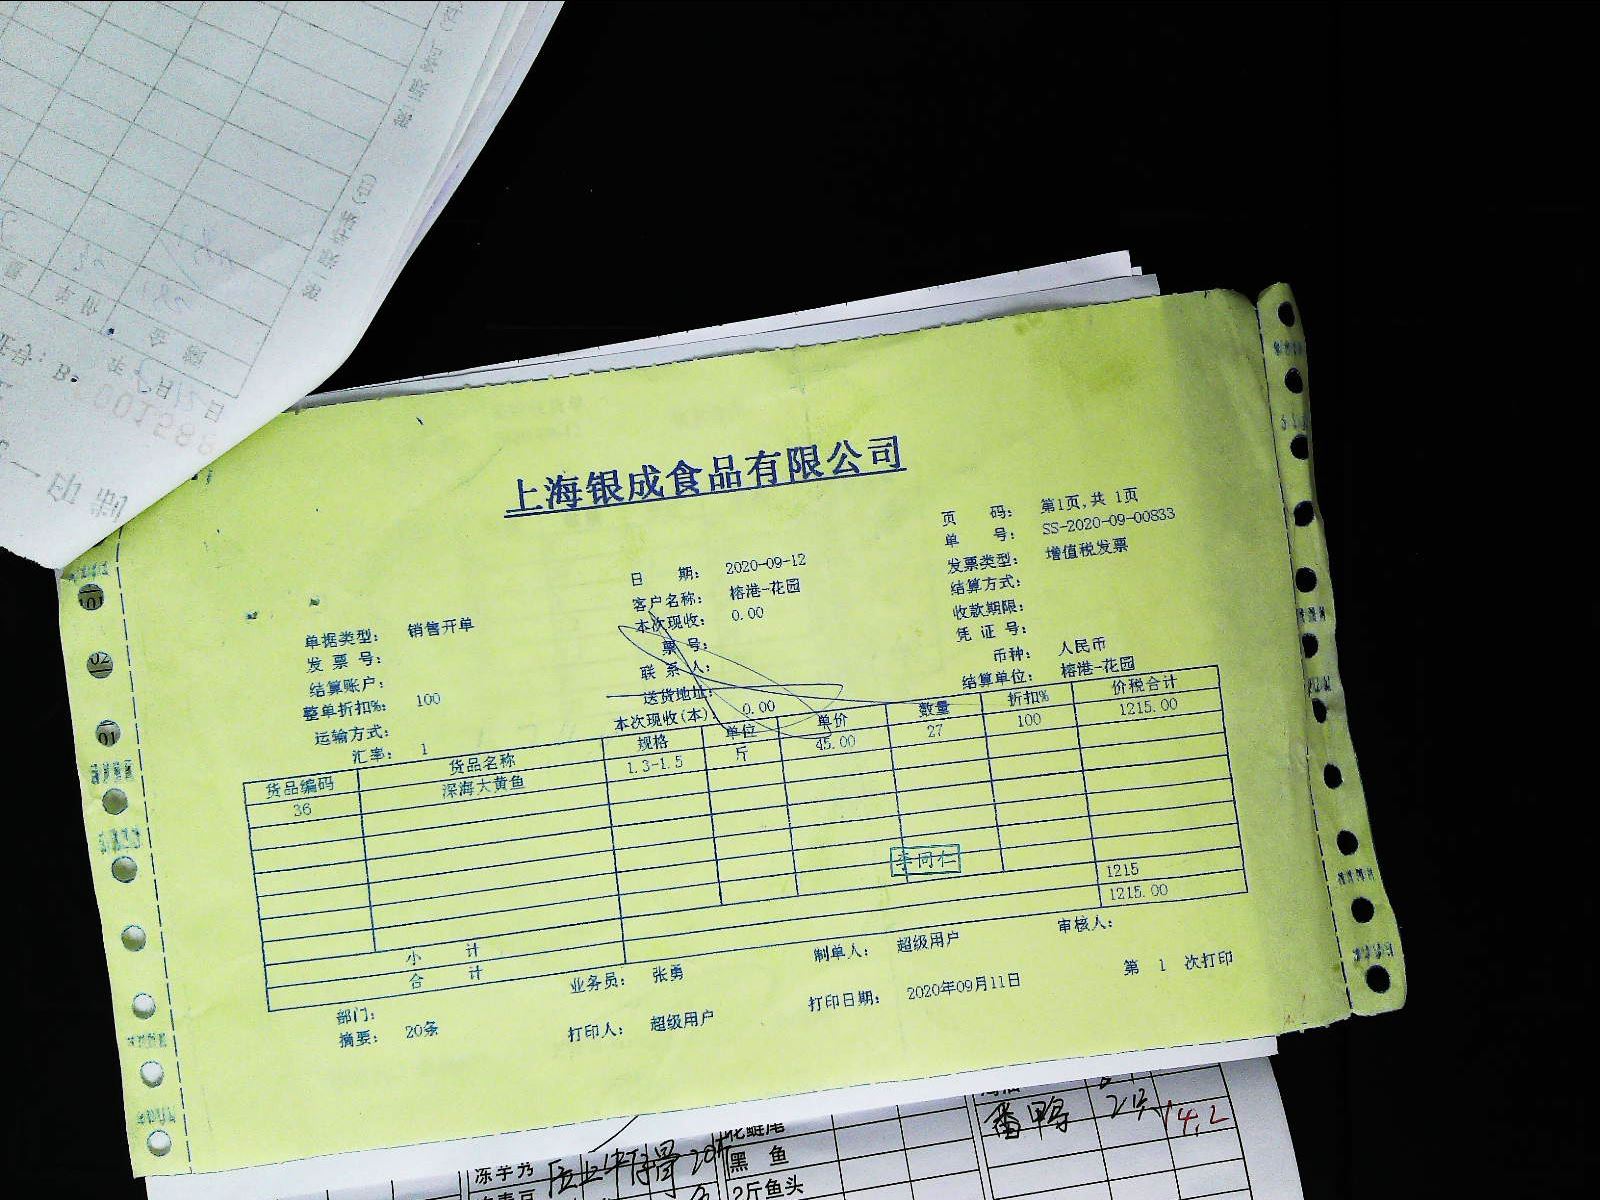 上海银成食品有限公司
页 码： 第1页,共 1页
单 号： SS-2020-09-00833
日 期： 2020-09-12
发票类型： 增值税发票
客户名称： 榕港-花园
结算方式：
单据类型： 销售开单
本次现收： 0.00
收款期限：
发 票 号：
票 号：
凭 证 号：
结算账户：
联 系 人：
币种： 人民币
整单折扣%： 100
送货地址：
结算单位： 榕港-花园
运输方式：
本次现收(本)： 0.00
汇率： 1
货品编码 货品名称 规格 单位 单价 数量 折扣% 价税合计
36 深海大黄鱼 1.3-1.5 斤 45.00 27 100 1215.00
李同仁
小 计 1215
合 计 1215.00
部门： 业务员： 张勇 制单人： 超级用户 审核人：
摘要： 20条 打印人： 超级用户 打印日期： 2020年09月11日 第 1 次打印
番鸭 2只 14.2
花鲢尾
黑 鱼
2斤鱼头